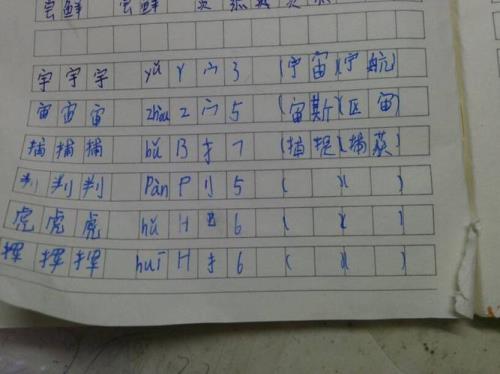 尝鲜 尝鲜
宇 宇 宇 yǔ Y 宀 3 (宇宙)(宇航)
宙 宙 宙 zhòu Z 宀 5 (宙斯)(区宙)
捕 捕 捕 bǔ B 扌 7 (捕捉)(捕获)
判 判 判 Pàn P 刂 5 ( )( )
虎 虎 虎 hǔ H 虍 6 ( )( )
挥 挥 挥 huī H 扌 6 ( )( )